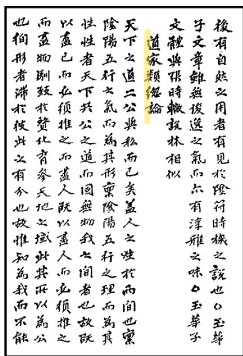 後有自然之用者有見於陰符時機之説也〇玉華
子文章雖無俊逸之氣而亦有淳雅之味〇玉華子
文體與張時職説林相似
道家類總論
天下之道二公與私而已矣蓋人之生於兩間也稟
陰陽五行之氣而爲其形稟陰陽五行之理而爲其
性性者天下共公之道而固無物我之間者也故既
以盡己而必須推之而盡人既以盡人而必須推之
而盡物馴致於贊化育參天地之域此其所以爲公
也徇形者滯於彼此之有分也故惟知爲我而不能